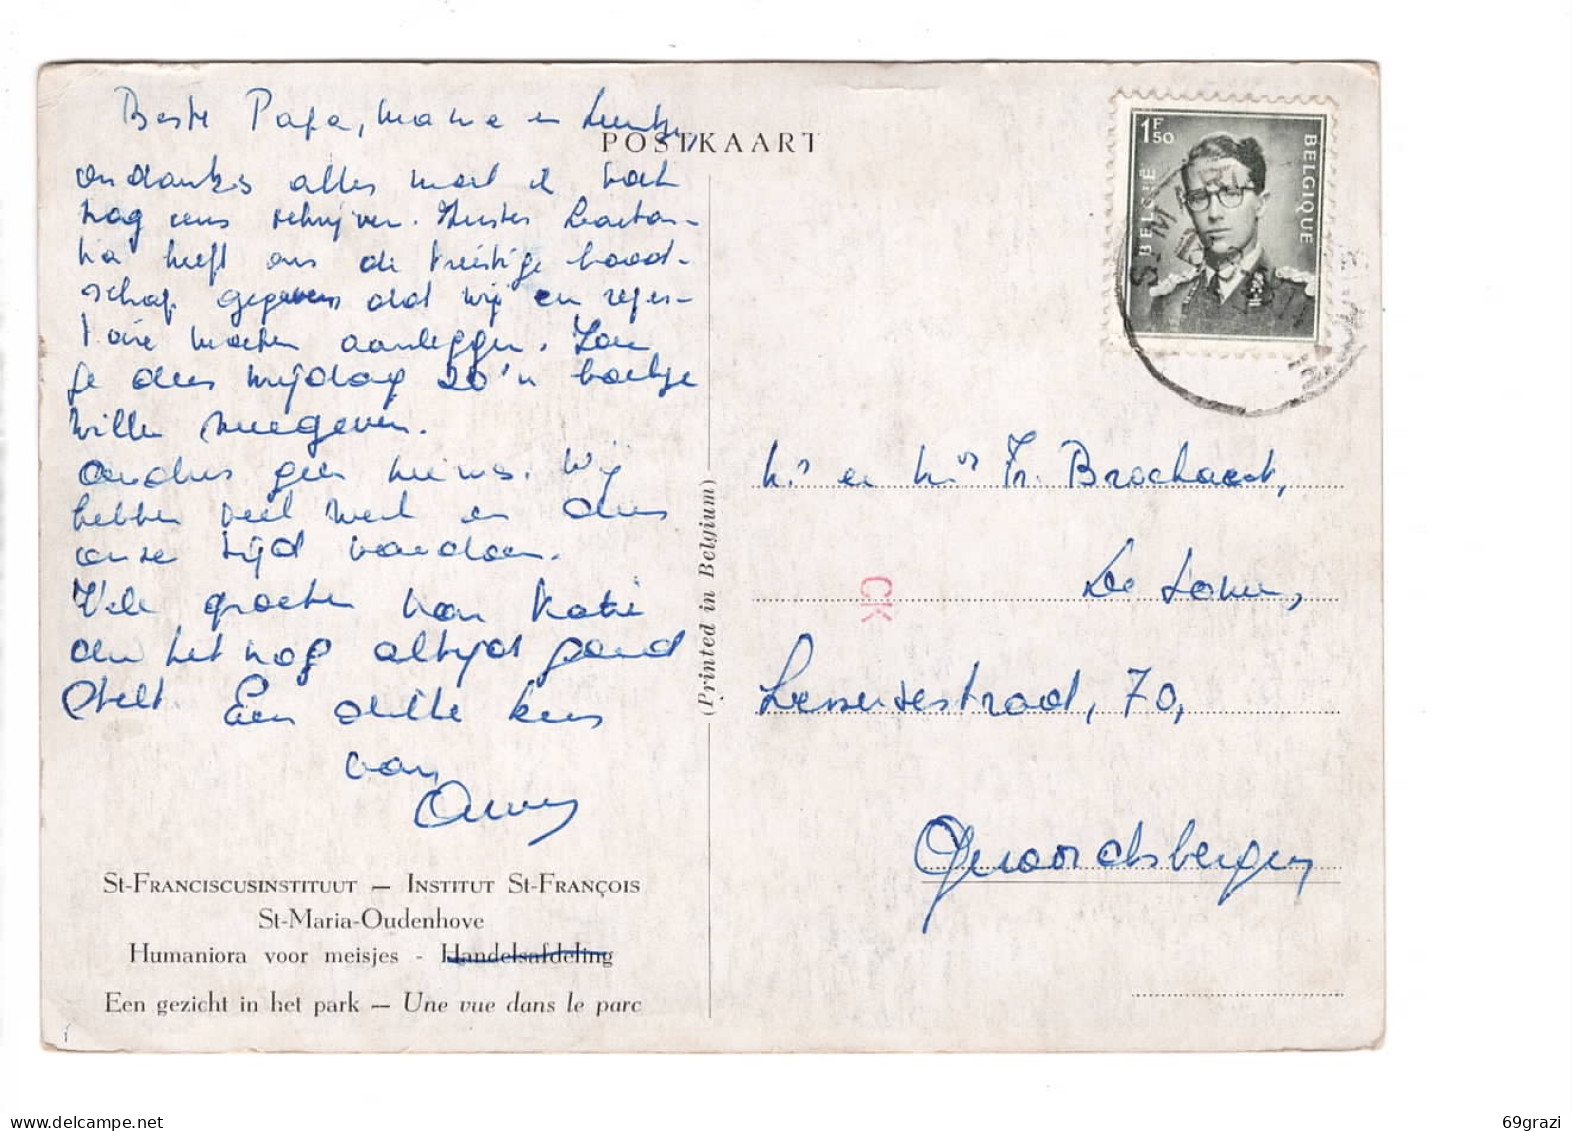 Beste Papa, Mama en Leentje,
ondanks alles moet ik toch
nog eens schrijven. Zuster Gaeta-
na heeft ons de treurige bood-
schap gegeven dat wij een reper-
toire moeten aanleggen. Zou
je deze vrijdag zo'n boekje
willen meegeven.
Anders geen nieuws. Wij
hebben veel werk en dus
onze tijd vandoen.
Vele groeten van Katie
die het nog altijd goed
stelt. Een dikke kus
van
POSTKAART
1F50
BELGIË
BELGIQUE
(Printed in Belgium)
Mr en Mvr Fr. Brochaert,
CK
Lessensestraat, 70,
Geraardsbergen
St-Franciscusinstituut — Institut St-François
St-Maria-Oudenhove
Humaniora voor meisjes - Handelsafdeling
Een gezicht in het park — Une vue dans le parc
69grazi